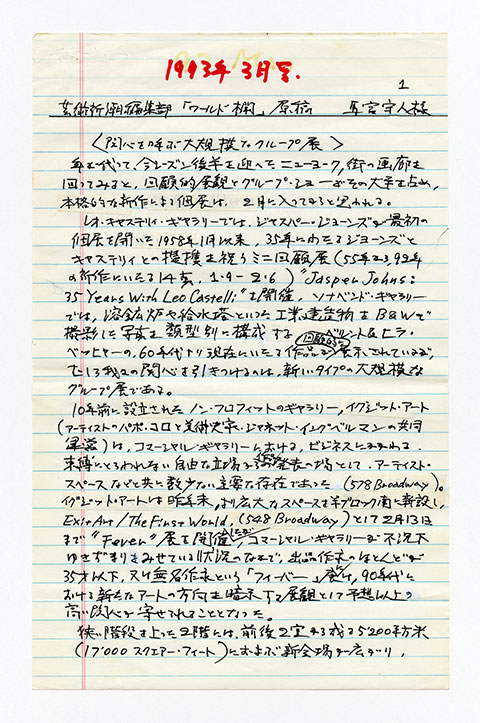 1993年3月号.
1
芸術新潮編集部「ワールド欄」原稿 馬宮守人様
〈関心を呼ぶ大規模なグループ展〉
年を代って、今シーズン後半を迎へたニューヨーク，街の画廊を
回ってみると，回顧的展観とグループ・ショーがその大半を占め，
本格的な新作による個展は，2月に入ってからと思われる。
レオ・キャステリィ・ギャラリーでは，ジャスパー・ジョーンズが最初の
個展を開いた1958年1月以来，35年にわたるジョーンズと
キャステリィとの提携を祝うミニ回顧展（55年から92年
の新作にいたる14点，1・9-2・6）"Jasper Johns:
35 Years With Leo Castelli"を開催，ソナベンド・ギャラリー
では，溶鉱炉や給水塔といった工業建造物をB&Wで
撮影した写真を類型別に構成する ベルント&ヒラ・
ベッヒャーの，60年代より現在にいたる作品の回顧的な展示されているが，
むしろ我々の関心を引きつけるのは，新しいタイプの大規模な
グループ展である。
10年前に設立されたノン・プロフィットのギャラリー，イグジット・アート
（アーティストのパポ・コロと美術史家・ジャネット・イングベルマンの共同
運営）は，コマーシャル・ギャラリーにおける，ビジネスに
束縛にとらわれない自由な立場の発表の場として，アーティスト・
スペースなどと共に数少ない主要な存在であった（578 Broadway）。
イグジット・アートは昨年末，より広大なスペースを半ブロック南に新設し，
Exit Art/The First World，（548 Broadway）として2月13日
まで"Fever"展を開催 コマーシャル・ギャラリーが不況下
ゆきずまりをみせている状況のなかで，出品作家のほとんどが
35才以下，又は無名作家という「フィーバー」展は，90年代に
おける新たなアートの方向を暗示する展観として予想以上の
高い関心が寄せられることとなった。
狭い階段を上った2階には，前後2室から成る5'200平方米
（17'000 スクエアー・フィート）におよぶ新会場が広がり，